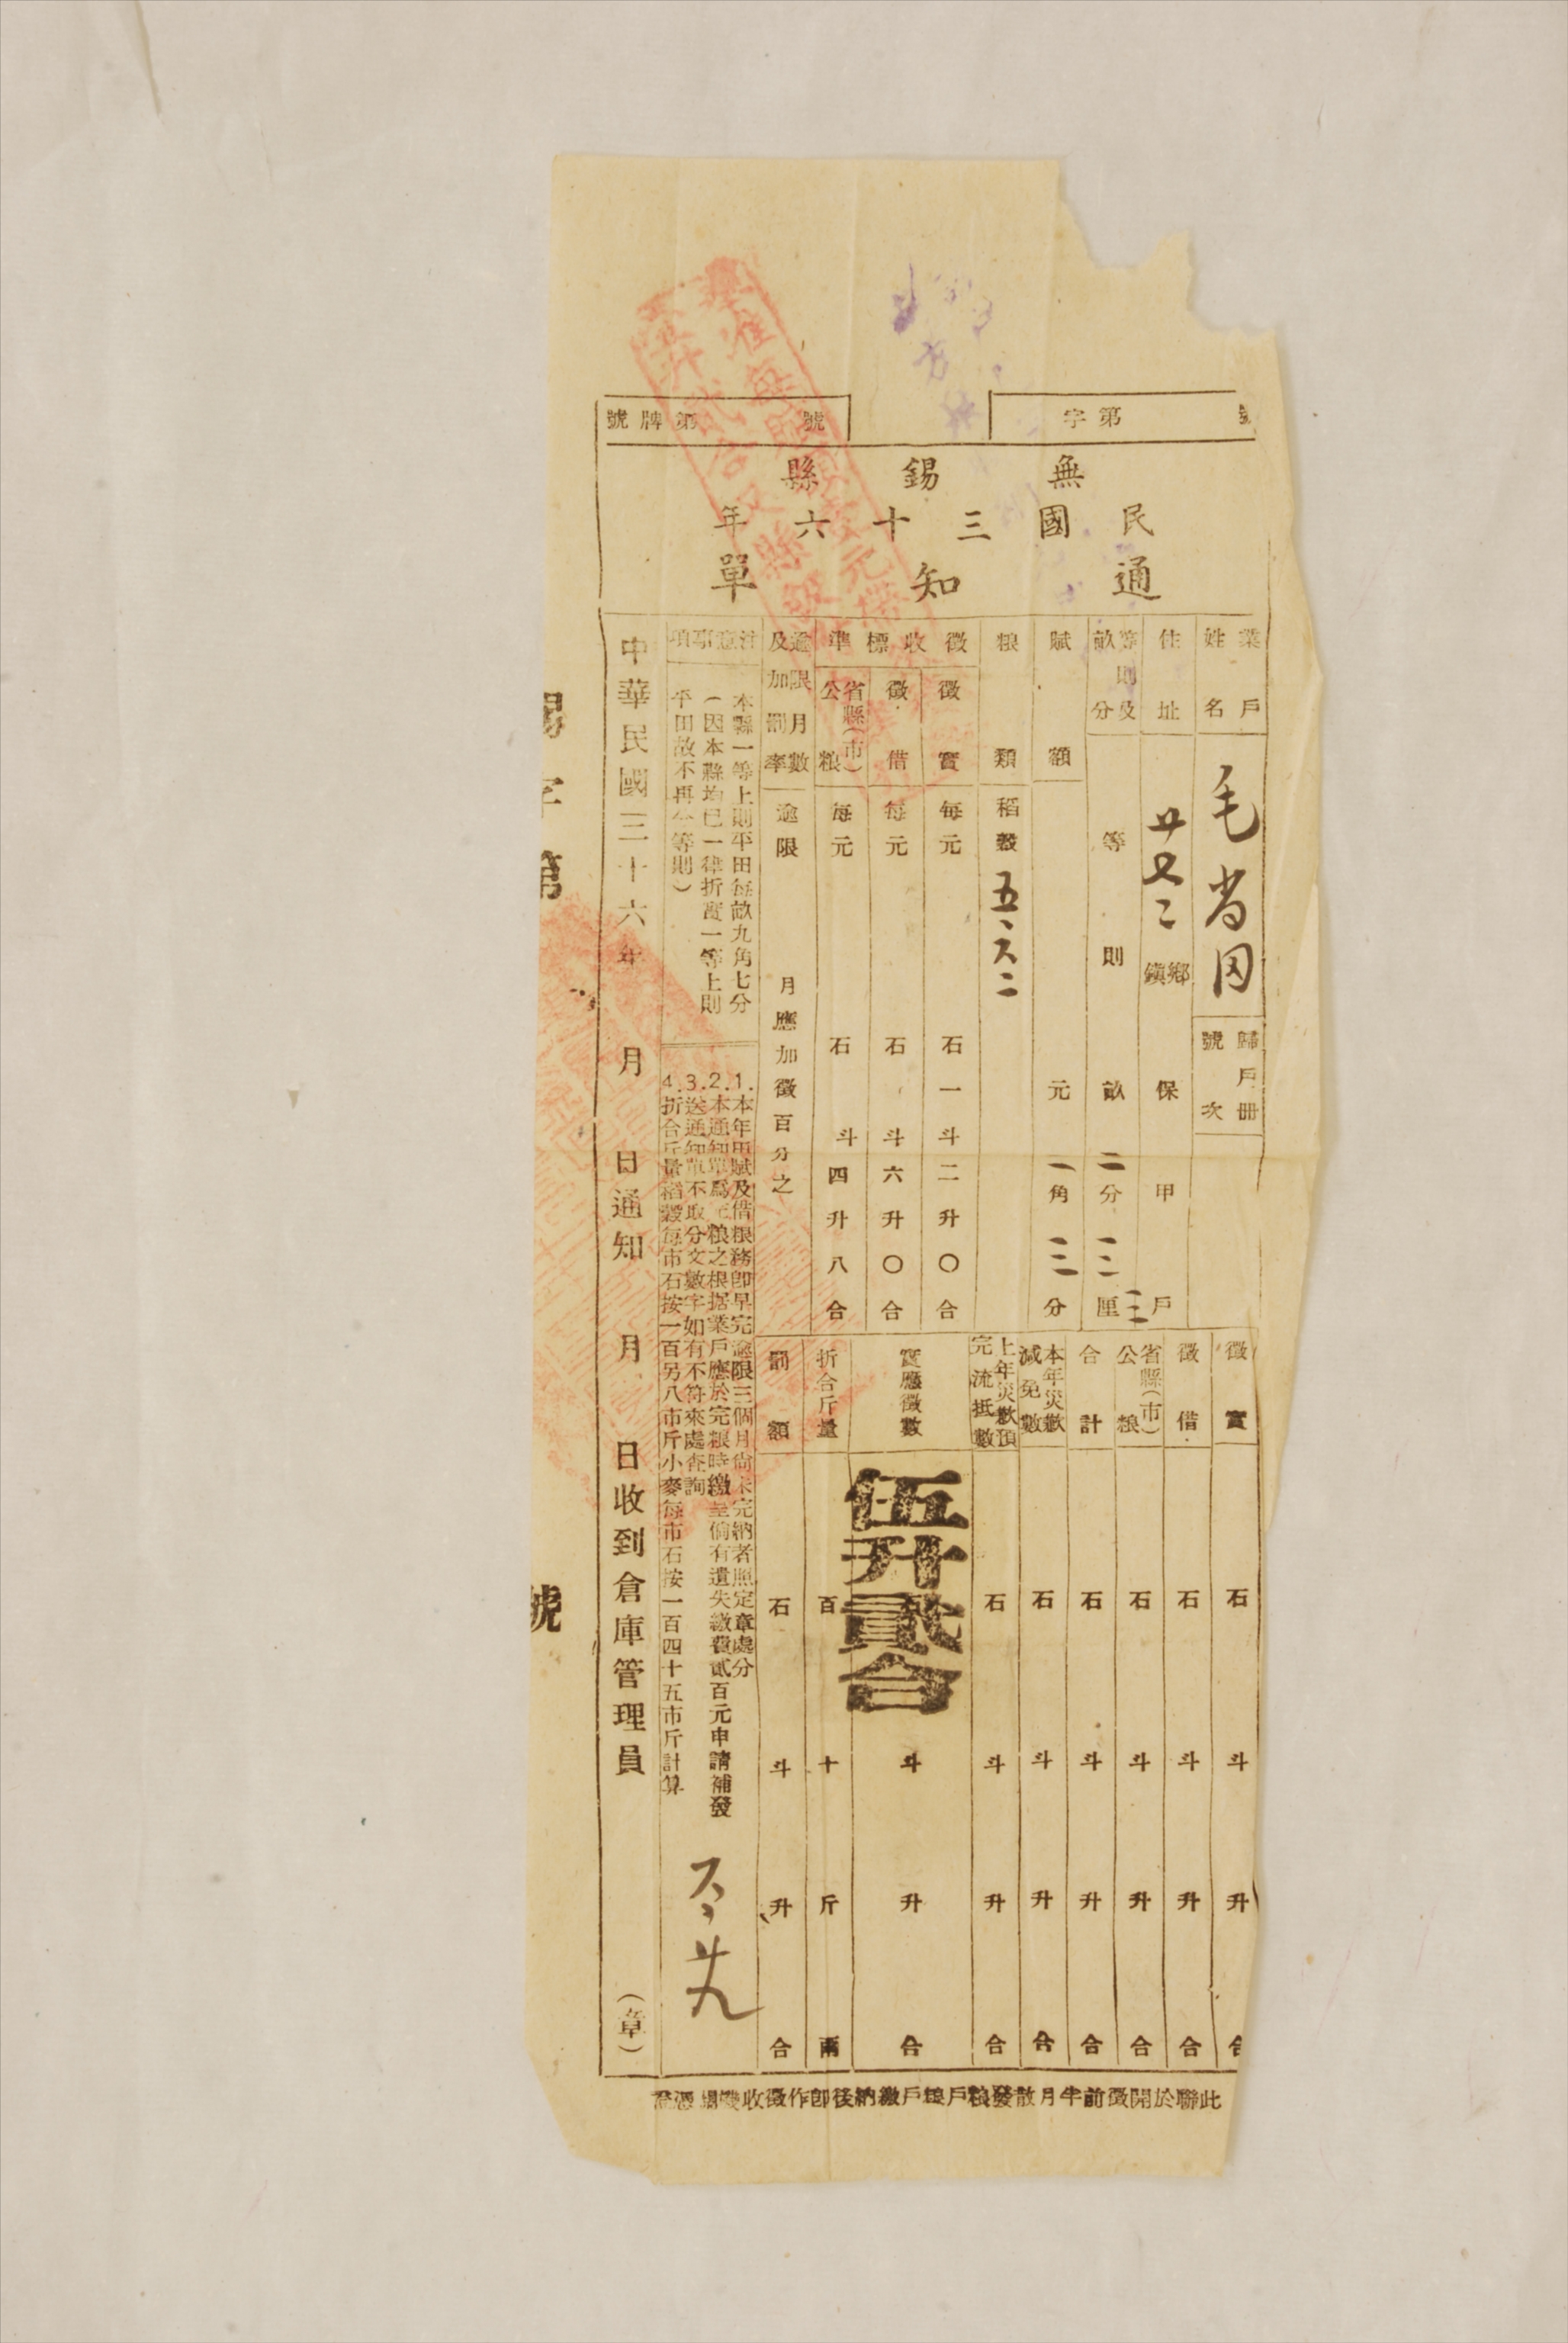 字第
號
號牌第
無錫縣
民國三十六年
通知單
業戶姓名
毛
歸戶冊號次
住址
鄉鎮
保
甲
戶
等則及畝分
等
則
畝
二分
三厘
賦額
元
一角
三分
粮類
稻穀
五、六二
徵收標準
徵實
每元
石一斗二升〇合
徵借
每元
石
斗六升〇合
省縣(市)公粮
每元
石
斗四升八合
逾限月數及加罰率
逾限
月應加徵百分之
注意事項
本縣一等上則平田每畝九角七分
(因本縣均已一律折實一等上則
平田故不再分等則)
1.本年田賦及借粮務卽早完逾限三個月尙未完納者照定章處分
2.本通知單爲完粮之根据業戶應於完粮時繳呈倘有遺失繳費貳百元申請補發
3.送通知單不取分文數字如有不符來處查詢
4.折合斤量稻穀每市石按一百另八市斤小麥每市石按一百四十五市斤計算
中華民國三十六年
月
日通知
月
日收到倉庫管理員
(章)
徵實
石
斗
升
合
徵借
石
斗
升
合
省縣(市)公粮
石
斗
升
合
合計
石
斗
升
合
本年災歉減免數
石
斗
升
合
上年災歉預完流抵數
石
斗
升
合
實應徵數
伍升貳合
斗
升
合
折合斤量
百
十
斤
兩
罰額
石
斗
升
合
此聯於開徵前半月散發粮戶粮戶繳納後卽作徵收機關憑證
錫字第
號